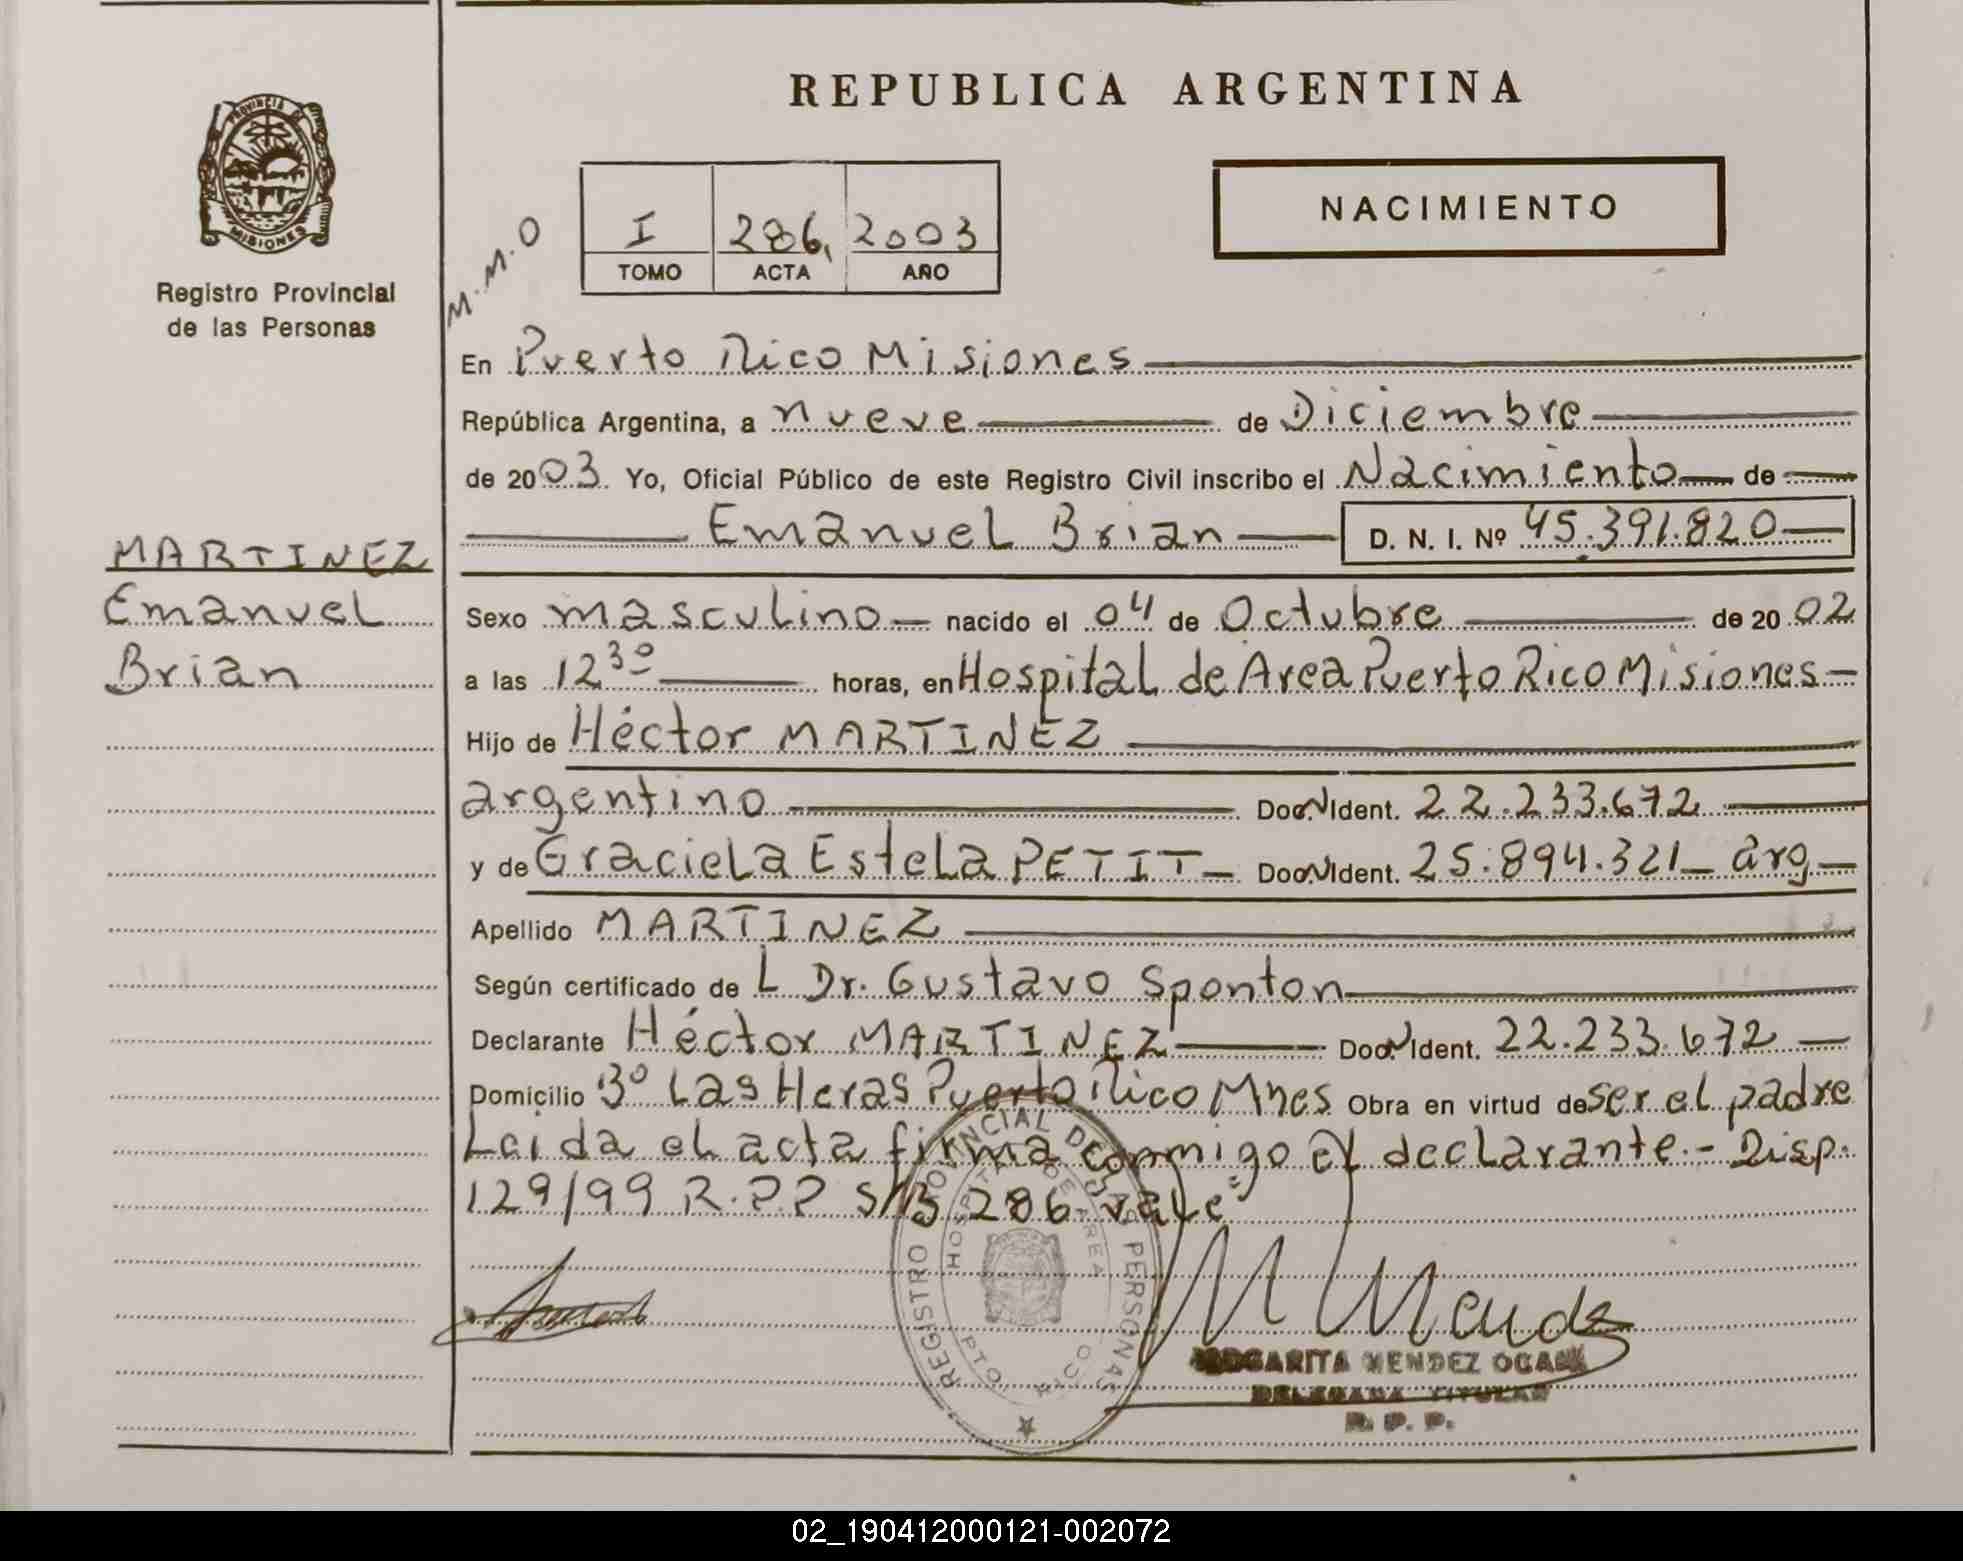 REPUBLICA ARGENTINA
PROVINCIA DE
MISIONES
Registro Provincial
de las Personas
M.M.O
I 286, 2003
TOMO ACTA AÑO
NACIMIENTO
En Puerto Rico Misiones
República Argentina, a nueve de Diciembre
de 2003. Yo, Oficial Público de este Registro Civil inscribo el Nacimiento de
Emanuel Brian D. N. I. Nº 45.391.820
MARTINEZ
Emanuel
Brian
Sexo masculino nacido el 04 de Octubre de 20 02
a las 12 30 horas, en Hospital de Area Puerto Rico Misiones
Hijo de Héctor MARTINEZ
argentino Doc.N Ident. 22.233.672
y de Graciela Estela PETIT Doc.N Ident. 25.894.321 arg
Apellido MARTINEZ
Según certificado de L Dr. Gustavo Sponton
Declarante Héctor MARTINEZ Doc.N Ident. 22.233.672
Domicilio Bº Las Heras Puerto Rico Mnes Obra en virtud de ser el padre
Leida el acta firma conmigo el declarante.- Disp.
129/99 R.P.P S/B 286 "vale"
REGISTRO PROVINCIAL DE LAS PERSONAS
HOSPITAL DE AREA
PTO. RICO
M Mendez
MARGARITA MENDEZ OCA
DELEGADA TITULAR
R. P. P.
02_190412000121-002072